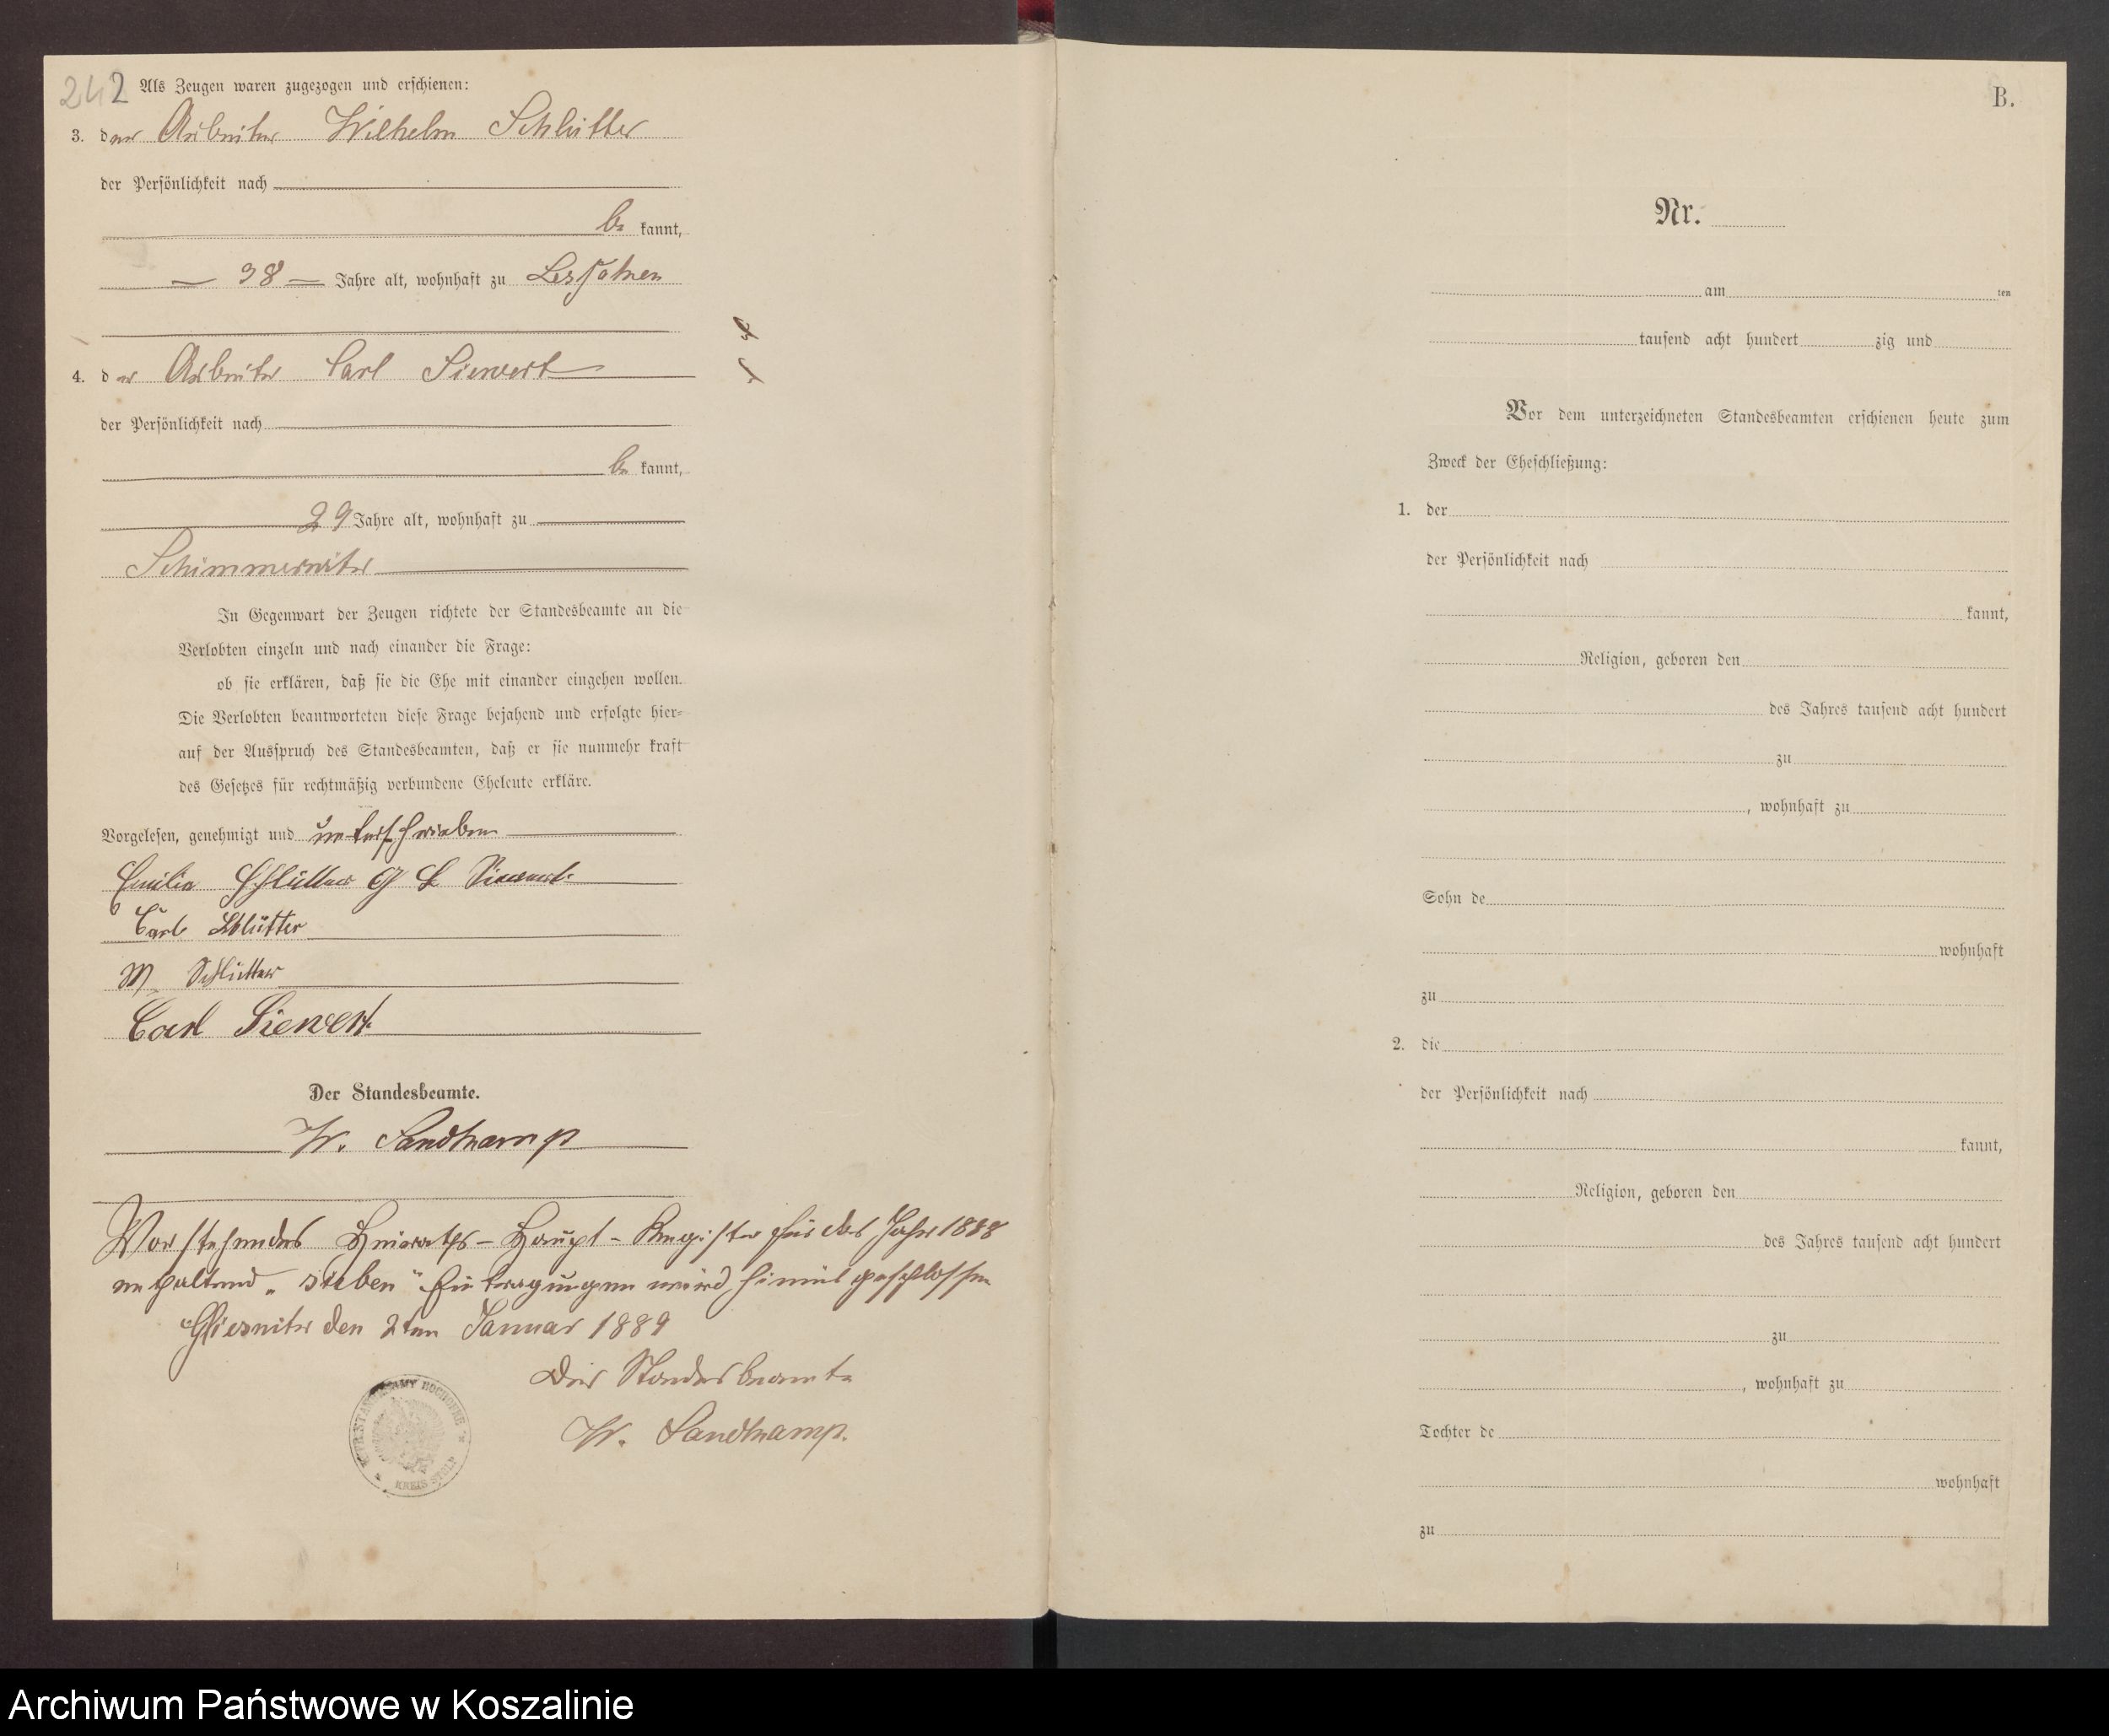 242 Als Zeugen waren zugezogen und erschienen:
3. der Arbeiter Wilhelm Schlütter
der Persönlichkeit nach
be kannt,
38 Jahre alt, wohnhaft zu
4. der Arbeiter Carl Siewert
der Persönlichkeit nach
be kannt,
29 Jahre alt, wohnhaft zu
Schimmerwitz
In Gegenwart der Zeugen richtete der Standesbeamte an die
Verlobten einzeln und nach einander die Frage:
ob sie erklären, daß sie die Ehe mit einander eingehen wollen.
Die Verlobten beantworteten diese Frage bejahend und erfolgte hier-
auf der Ausspruch des Standesbeamten, daß er sie nunmehr kraft
des Gesetzes für rechtmäßig verbundene Eheleute erkläre.
Vorgelesen, genehmigt und unterschrieben
Emilie Schlütter Siewert
Carl Schlütter
W Schlütter
Carl Siewert
Der Standesbeamte.
W. Sandkamp
Vorstehendes Heiraths-Haupt-Register für das Jahr 1888
enthaltend „sieben" Eintragungen wird hiermit geschlossen
den 2ten Januar 1889
Der Standesbeamte
W. Sandkamp.
KREIS STOLP
B.
Nr.
am ten
tausend acht hundert zig und
Vor dem unterzeichneten Standesbeamten erschienen heute zum
Zweck der Eheschließung:
1. der
der Persönlichkeit nach
kannt,
Religion, geboren den
des Jahres tausend acht hundert
zu
, wohnhaft zu
Sohn de
wohnhaft
zu
2. die
der Persönlichkeit nach
kannt,
Religion, geboren den
des Jahres tausend acht hundert
zu
, wohnhaft zu
Tochter de
wohnhaft
zu
Archiwum Państwowe w Koszalinie